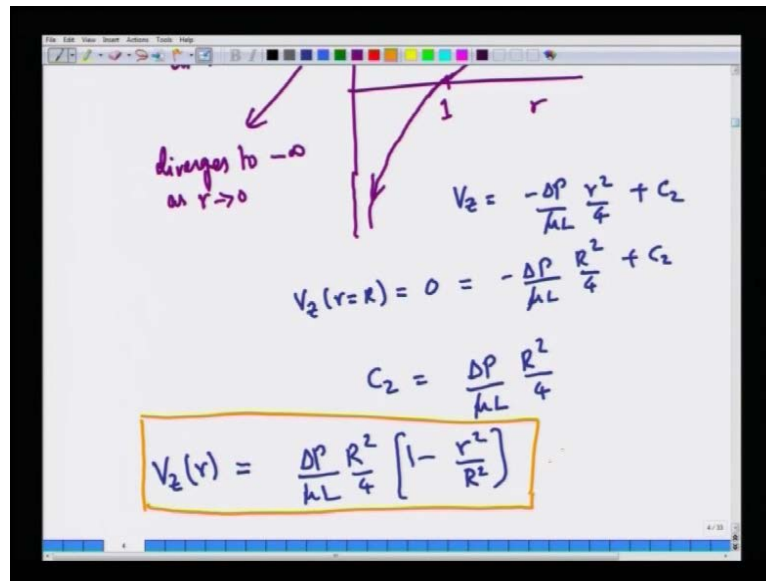 File Edit View Insert Actions Tools Help
B I
1 r
diverges to -∞
as r→0
V_z = -ΔP/μL r²/4 + C₂
V_z(r=R) = 0 = -ΔP/μL R²/4 + C₂
C₂ = ΔP/μL R²/4
V_z(r) = ΔP/μL R²/4 [1 - r²/R²]
4/33
4